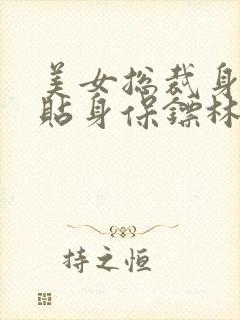 美女总裁身
贴身保镖林
持之恒